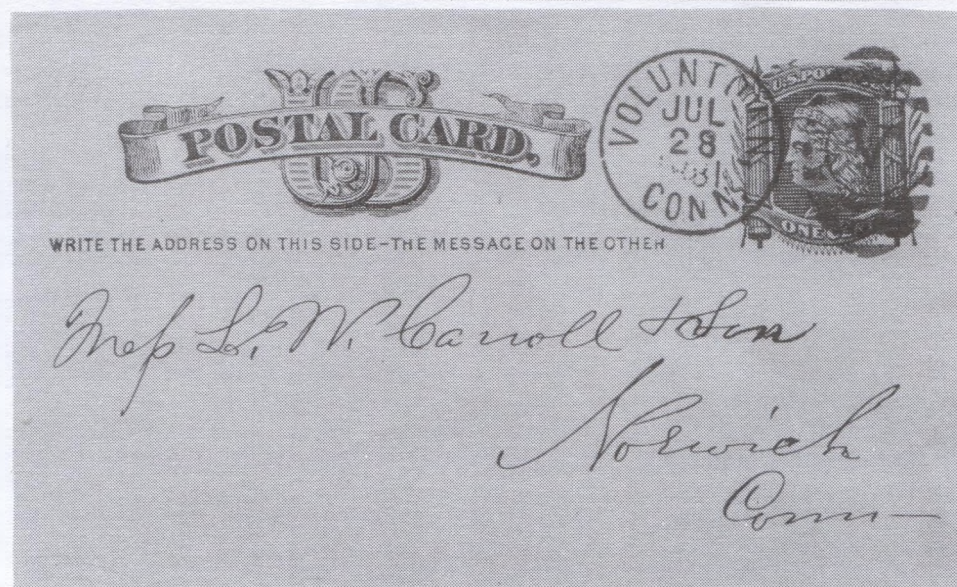 US
POSTAL CARD,
VOLUNTOWN
JUL
28
CONN
U.S. PO
ONE CENT
WRITE THE ADDRESS ON THIS SIDE-THE MESSAGE ON THE OTHER
Mess L. W. Carroll & Son
Norwich
Conn